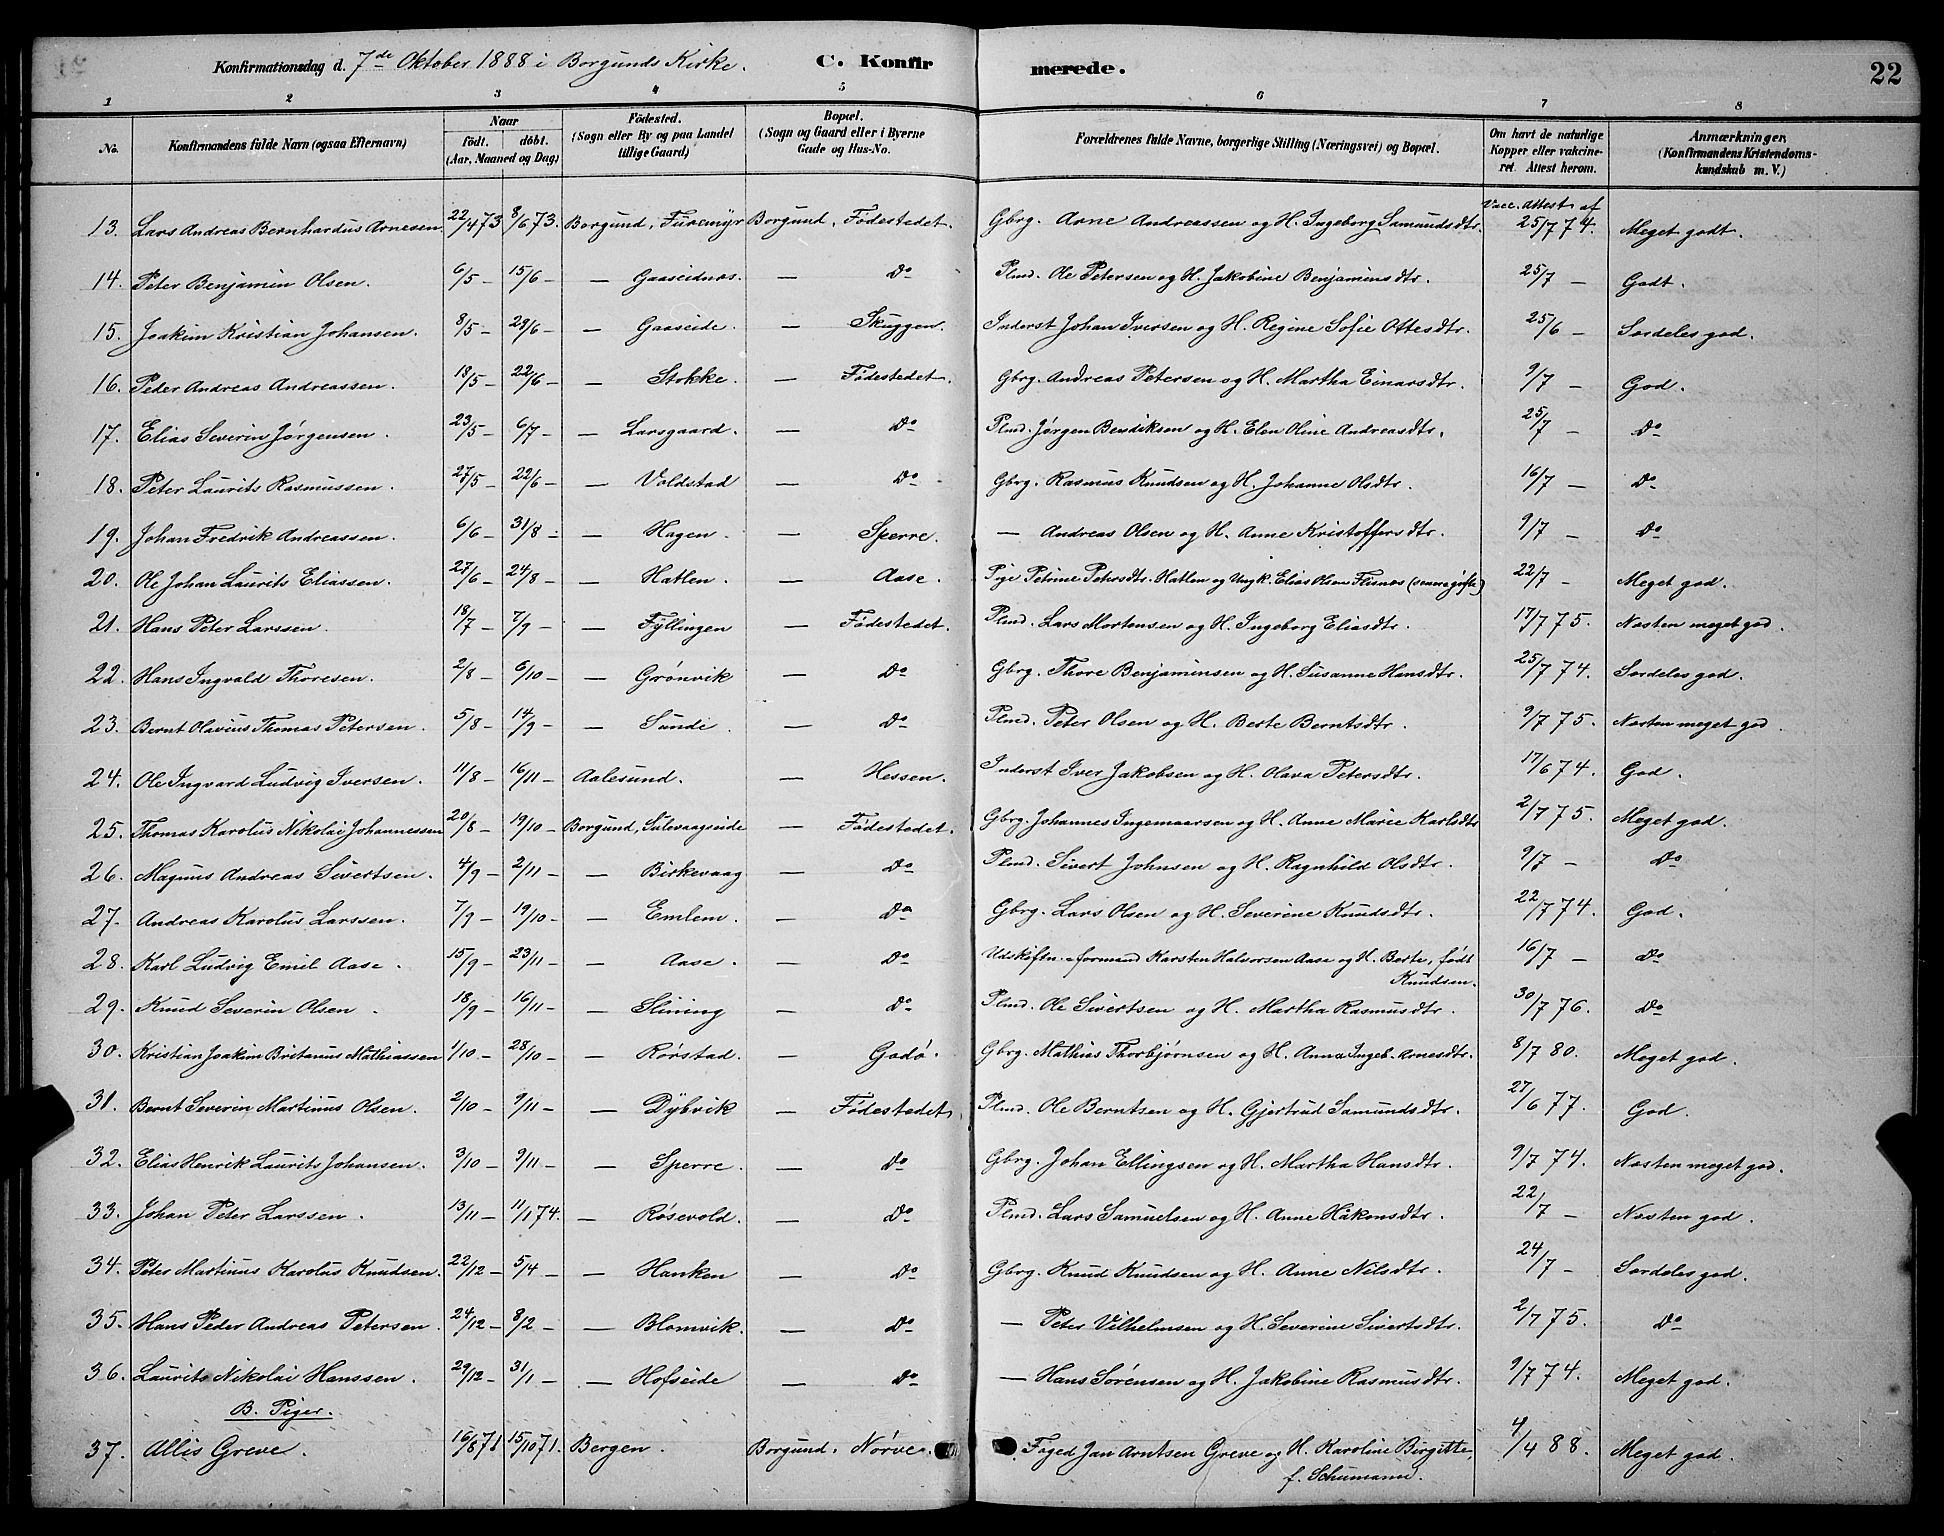 Konfirmationsdag d. 7de Oktober 1888 i Borgunds Kirke. C. Konfirmerede. 22
1 2 3 4 5 6 7 8
No. Konfirmandens fulde Navn (ogsaa Efternavn) Naar født. døbt. (Aar, Maaned og Dag) Fødested. (Sogn eller By og paa Landet tillige Gaard) Bopæl. (Sogn og Gaard eller i Byerne Gade og Hus-No. Forældrenes fulde Navne, borgerlige Stilling (Næringsvei) og Bopæl. Om havt de naturlige Kopper eller vakcineret. Attest herom. Anmærkninger, (Konfirmandens Kristendomskundskab m. V.)
13. Lars Andreas Bernhardus Arnesen 22/4 73 8/6 73. Borgund, Furemyr Borgund, Fødestedet. Gbrg. Arne Andreassen og H. Ingeborg Samundsdtr. Vacc. Attest af 25/7 74. Meget godt.
14. Peter Benjamin Olsen. 6/5 — 15/6 — — Gaaseidnes. — Do Plmd. Ole Petersen og H. Jakobine Benjaminsdtr. 25/7 — Godt.
15. Joakim Kristian Johansen. 8/5 — 29/6 — — Gaaseide. — Skuggen. Inderst Johan Iversen og H. Regine Sofie Ottesdtr. 25/6 — Særdeles god.
16. Peder Andreas Andreassen. 18/5 — 22/6 — — Stokke. — Fødestedet. Gbrg. Andreas Petersen og H. Martha Einarsdtr. 9/7 — God.
17. Elias Severin Jørgensen. 23/5 — 6/7 — — Larsgaard. — Do Plmd. Jørgen Bendiksen og H. Elen Oline Andreasdtr. 25/7 — Do
18. Peter Laurits Rasmussen. 27/5 — 22/6 — — Voldstad — Do Gbrg. Rasmus Knudsen og H. Johanne Olsdtr. 16/7 — Do
19. Johan Fredrik Andreassen. 6/6 — 31/8 — — Hagen. — Sperre. — Andreas Olsen og H. Anne Kristoffersdtr. 9/7 — Do
20. Ole Johan Laurits Eliassen. 27/6 — 24/8 — — Hatlen. — Aase. Pige Petrine Petersdtr. Hatlen og Ungk. Elias Olsen Flisnæs (senere gifte) 22/7 — Meget god.
21. Hans Peter Larssen. 18/7 — 7/9 — — Fyllingen — Fødestedet. Plmd. Lars Mortensen og H. Ingeborg Eliasdtr. 17/7 75. Næsten meget god.
22. Hans Ingvald Thoresen. 2/8 — 6/10 — — Grønvik — Do Gbrg. Thore Benjaminsen og H. Susanne Hansdtr. 25/7 74. Særdeles god.
23. Bernt Olavius Thomas Petersen. 5/8 — 14/9 — — Sunde. — Do Plmd. Peter Olsen og H. Berte Berntsdtr. 9/7 75. Næsten meget god
24. Ole Ingvard Ludvig Iversen. 11/8 — 16/11 — Aalesund. — Hessen. Inderst Iver Jakobsen og H. Olava Petersdtr. 17/6 74. God.
25. Thomas Karolus Nikolai Johannessen 20/8 — 19/10 — Borgund, Sulevaagseide — Fødestedet. Gbrg. Johannes Ingemaarsen og H. Anne Marie Karlsdtr 2/7 75. Meget god.
26. Magnus Andreas Sivertsen. 4/9 — 2/11 — — Birkevaag — Do Plmd. Sivert Johnsen og H. Ragnhild Olsdtr. 9/7 — Do
27. Andreas Karolus Larssen. 7/9 — 19/10 — — Emlem. — Do Gbrg. Lars Olsen og H. Severine Knudsdtr. 22/7 74. God.
28. Karl Ludvig Emil Aase. 15/9 — 23/11 — — Aase. — Do Udskiftn.-formand Karsten Halvorsen Aase og H. Berte, født Knudsen. 16/7 — Do
29. Knud Severin Olsen. 18/9 — 16/11 — — Slining — Do Plmd. Ole Sivertsen og H. Martha Rasmusdtr. 30/7 76. Do
30. Kristian Joakim Britanus Mathiassen 1/10 — 28/10 — — Rørstad. — Godø. Gbrg. Mathias Thorbjørnsen og H. Anna Ingeb. Arnesdtr. 8/7 80. Meget god.
31. Bernt Severin Martinus Olsen. 2/10 — 9/11 — — Dybvik — Fødestedet Plmd. Ole Berntsen og H. Gjertrud Samundsdtr. 27/6 77. God.
32. Elias Henrik Laurits Johansen. 3/10 — 9/11 — — Sperre. — Do Gbrg. Johan Ellingsen og H. Martha Hansdtr. 9/7 74. Næsten meget god.
33. Johan Peter Larssen. 13/11 — 11/1 74. — Røsevold. — Do Plmd. Lars Samuelsen og H. Anne Håkonsdtr. 22/7 — Næsten god.
34. Peter Martinus Karolus Knudsen. 22/12 — 5/4 — — Hanken — Do Gbrg. Knud Knudsen og H. Anne Nilsdtr. 24/7 — Særdeles god.
35. Hans Peder Andreas Petersen. 24/12 — 8/2 — — Blomvik. — Do — Peter Vilhelmsen og H. Severine Sivertsdtr. 2/7 75. Do
36. Laurits Nikolai Hanssen. 29/12 — 31/1 — — Hofseide — Do — Hans Sørensen og H. Jakobine Rasmusdtr. 9/7 74. Meget god.
B. Piger.
37. Allis Greve. 16/8 71 15/10 71. Bergen. Borgund. Nørve. Foged Jan Arntsen Greve og H. Karoline Birgitte, f. Schumann. 4/4 88. Meget god.